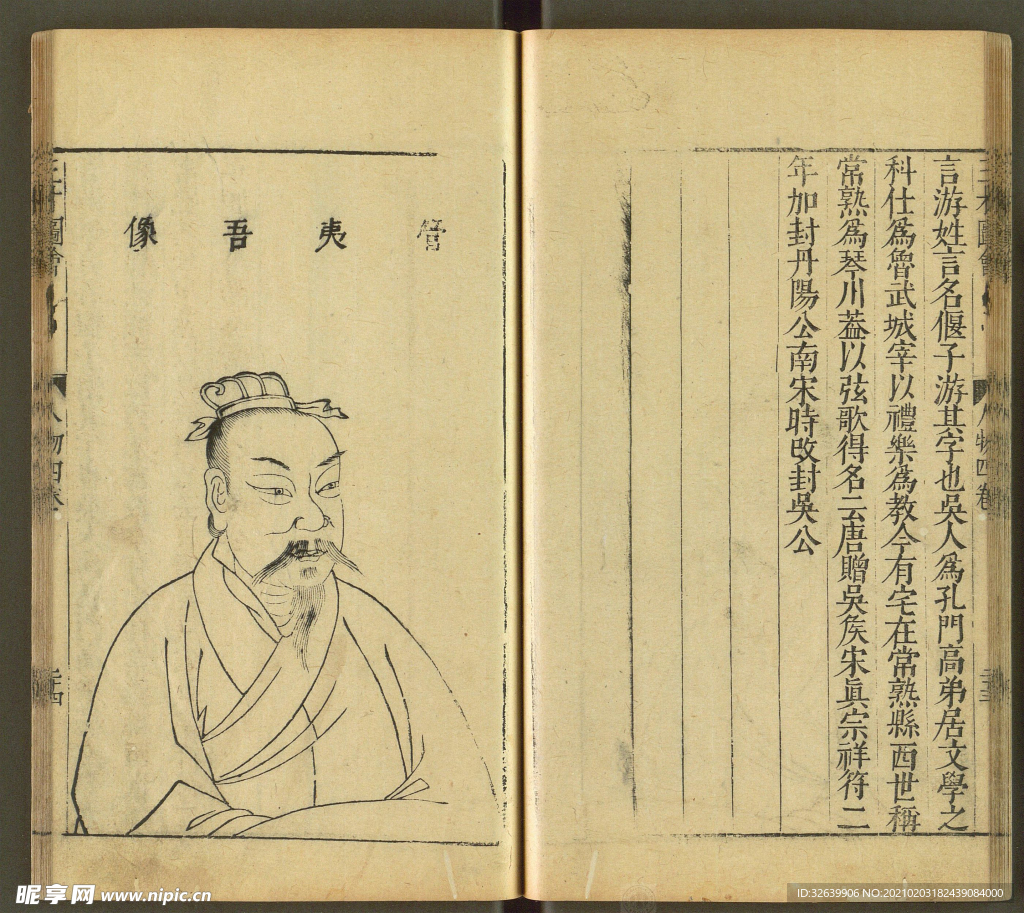 三才圖會
人物四卷
三十三
言游姓言名偃子游其字也吳人爲孔門高弟居文學之
科仕爲魯武城宰以禮樂爲教今有宅在常熟縣西世稱
常熟爲琴川蓋以弦歌得名云唐贈吳矦宋眞宗祥符二
年加封丹陽公南宋時改封吳公
管夷吾像
圖會
人物四卷
三十四
昵享网 www.nipic.cn
ID:32639906 NO:20210203182439084000